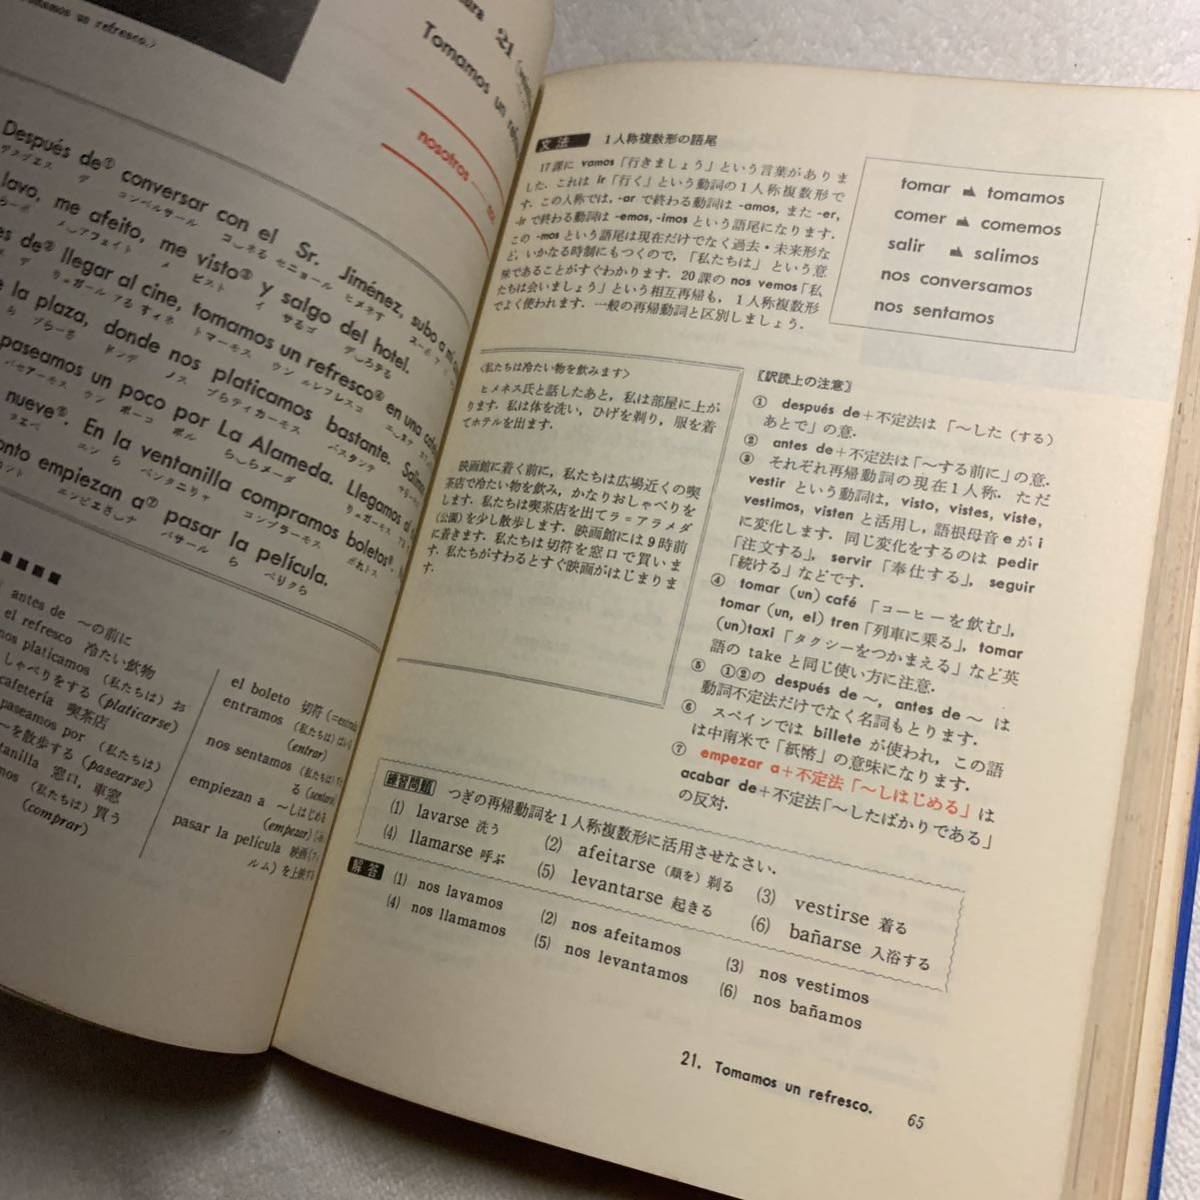 tomamos un refresco.)
21
Tomamos un
nosotros
Después de① conversar con el Sr. Jiménez, subo a mi
デスプエス デ コンベルサール コン える セニョール ヒメネす
lavo, me afeito, me visto③ y salgo del hotel.
de② llegar al cine, tomamos un refresco④ en una
la plaza, donde nos platicamos bastante.
paseamos un poco por La Alameda. Llegamos
パセアーモス ウン ポーコ ポル
nueve⑤. En la ventanilla compramos boletos⑥.
ヌエベ エン ら ベンタニリャ コンプラーモス ボれトス
empiezan a⑦ pasar la película.
パサール ら ぺりクら
antes de 〜の前に
el refresco 冷たい飲物
nos platicamos (私たちは) お
しゃべりをする (platicarse)
cafetería 喫茶店
paseamos por (私たちは)
〜を散歩する (pasearse)
窓口, 車窓
(私たちは) 買う
(comprar)
el boleto 切符
entramos (私たちは) はいる
(entrar)
nos sentamos (私たちは)
る (sentarse)
empiezan a 〜しはじめる
(empezar)
pasar la película 映画(フィ
ルム) を上映する
文法 1人称複数形の語尾
17課に vamos「行きましょう」という言葉がありま
した. これは ir「行く」という動詞の1人称複数形で
す. この人称では, -ar で終わる動詞は -amos, また -er,
-ir で終わる動詞は -emos, -imos という語尾になります.
この -mos という語尾は現在だけでなく過去・未来形な
ど, いかなる時制にもつくので,「私たちは」という意
味であることがすぐわかります. 20課の nos vemos「私
たちは会いましょう」という相互再帰も, 1人称複数形
でよく使われます. 一般の再帰動詞と区別しましょう.
tomar tomamos
comer comemos
salir salimos
nos conversamos
nos sentamos
<私たちは冷たい物を飲みます>
ヒメネス氏と話したあと, 私は部屋に上が
ります. 私は体を洗い, ひげを剃り, 服を着
てホテルを出ます.
映画館に着く前に, 私たちは広場近くの喫
茶店で冷たい物を飲み, かなりおしゃべりを
します. 私たちは喫茶店を出てラ=アラメダ
(公園) を少し散歩します. 映画館には9時前
に着きます. 私たちは切符を窓口で買いま
す. 私たちがすわるとすぐ映画がはじまりま
す.
〔訳読上の注意〕
① después de+不定法は「〜した (する)
あとで」の意.
② antes de+不定法は「〜する前に」の意.
③ それぞれ再帰動詞の現在1人称. ただ
vestir という動詞は, visto, vistes, viste,
vestimos, visten と活用し, 語根母音 e が i
に変化します. 同じ変化をするのは pedir
「注文する」, servir「奉仕する」, seguir
「続ける」などです.
④ tomar (un) café「コーヒーを飲む」,
tomar (un, el) tren「列車に乗る」, tomar
(un)taxi「タクシーをつかまえる」など英
語の take と同じ使い方に注意.
⑤ ①②の después de 〜, antes de 〜 は
動詞不定法だけでなく名詞もとります.
⑥ スペインでは billete が使われ, この語
は中南米で「紙幣」の意味になります.
⑦ empezar a+不定法「〜しはじめる」は
acabar de+不定法「〜したばかりである」
の反対.
練習問題 つぎの再帰動詞を1人称複数形に活用させなさい.
(1) lavarse 洗う (2) afeitarse (顔を) 剃る (3) vestirse 着る
(4) llamarse 呼ぶ (5) levantarse 起きる (6) bañarse 入浴する
解答 (1) nos lavamos (2) nos afeitamos (3) nos vestimos
(4) nos llamamos (5) nos levantamos (6) nos bañamos
21. Tomamos un refresco. 65